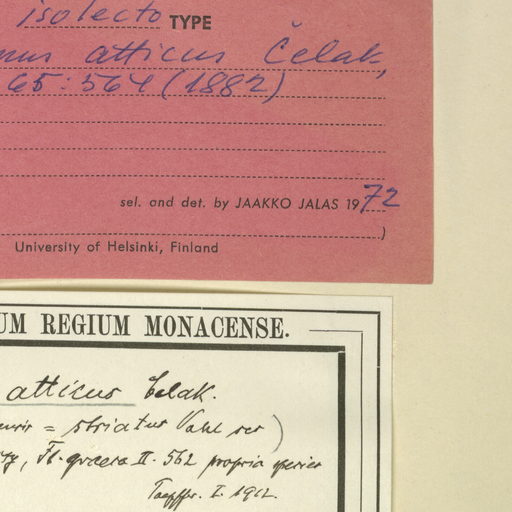 isolecto TYPE
nus atticus Čelak,
65:564 (1882)
sel. and det. by JAAKKO JALAS 1972
)
University of Helsinki, Finland
UM REGIUM MONACENSE.
atticus Čelak.
= striatus Vahl )
Fl. graeca II. 562 propria species
Toepffer. I. 1912.